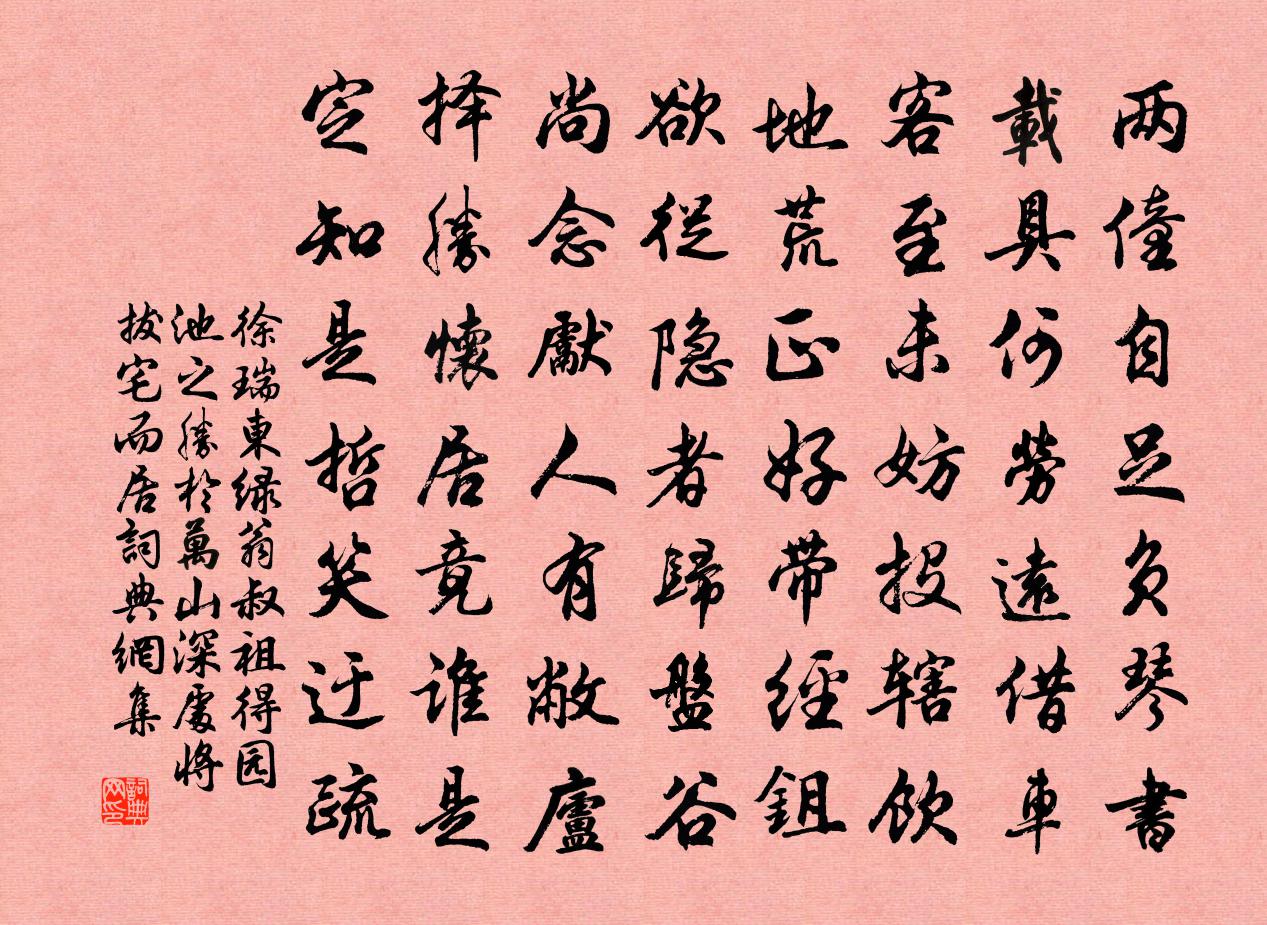 两僮自足负琴書
載具何勞遠借車
客至未妨投辖飲
地荒正好带經鉏
欲從隐者歸盤谷
尚念獻人有敝廬
择勝懷居竟谁是
定知是哲笑迂疏
徐瑞東绿翁叔祖得园
池之勝於萬山深處將
拔宅而居詞典網集
詞典
网印